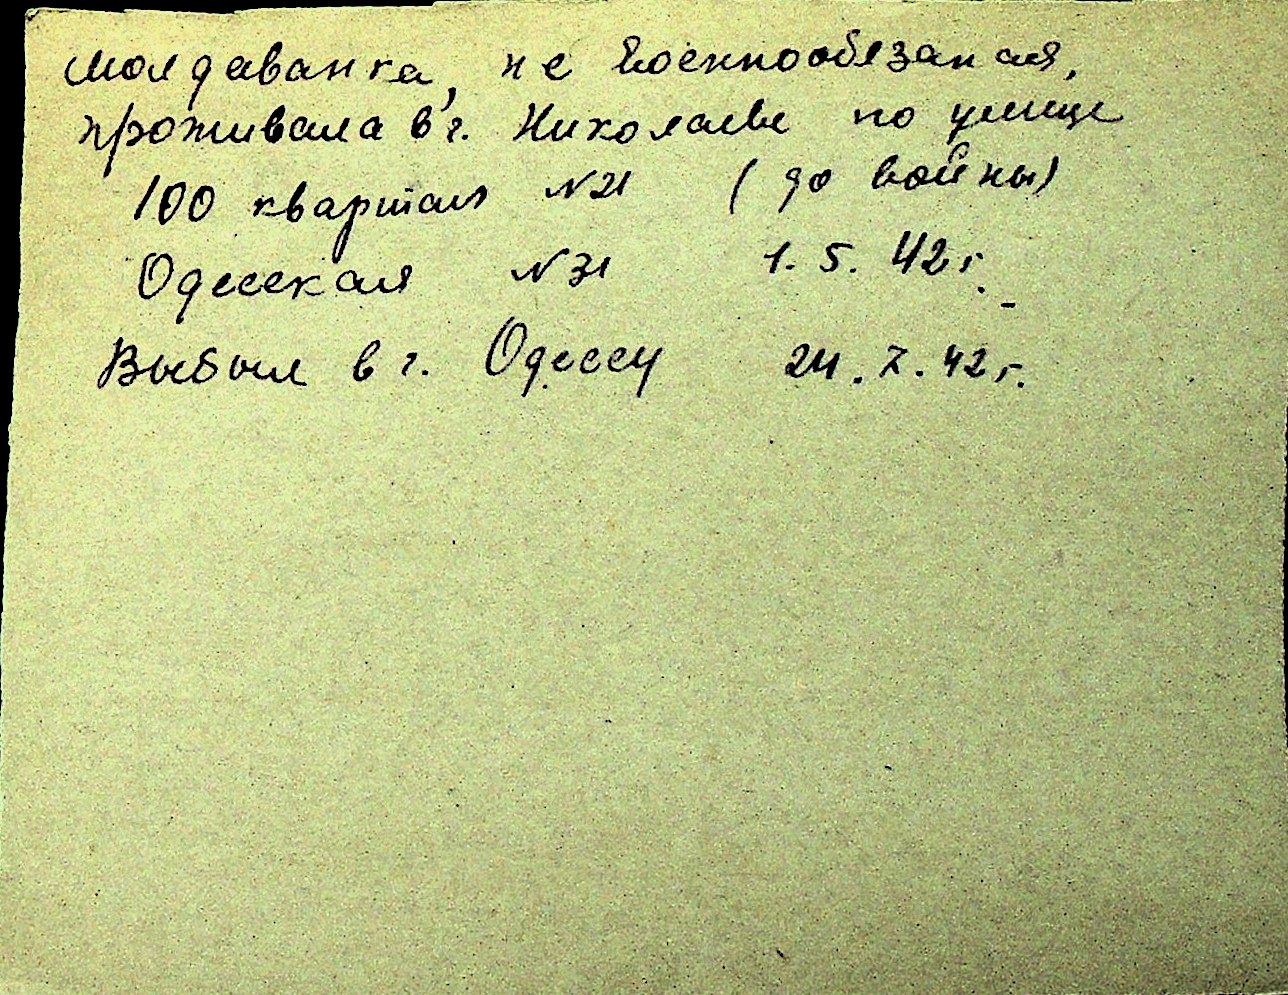 молдаванка, не военнообязаная,
проживала в г. Николаеве по улице
100 квартал №21 (до войны)
Одесская №31 1.5.42г.
Выбыл в г. Одессу 24.X.42г.